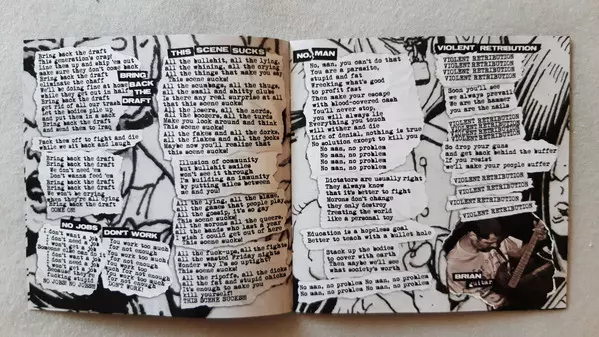 BRING BACK THE DRAFT
Bring back the draft
This generation's crap!
Line them up and ship 'em out
make sure they don't come back
Bring back the draft
Eliminate the chaff
We'll be doing fine at home
while they get cut in half
Bring back the draft
get rid of all our trash
Let the bodies pile up
and put them in a sack
Bring back the draft
Bring back the draft
and send them to Iraq
Pack them off to fight and die
we sit back and laugh
Bring back the draft
Bring back the draft
We don't need 'em
Don't wanna feed 'em
Bring back the draft
We won't be crying
when they're all dying
Bring back the draft
COME ON!
NO JOBS
I don't want a job
I don't need a job
NO JOBS NO JOBS!
DON'T WORK
You work too much
not enough
You work too much
not enough
DON'T WORK!
THIS SCENE SUCKS
All the bullshit, all the lying,
all the whining, all the crying
All the things that make you say
This scene sucks!
All the scumbags, all the thugs,
all the swill and shitty clubs
Is there any real surprise at all
that this scene sucks!
All the losers, all the nerds,
all the boozers, all the turds
Make you look around and think
This scene sucks!
All the fakes and all the dorks,
all the flakes and all the jocks
Maybe now you'll realize that
this scene sucks!
Illusion of community
but bullshit walls
won't see it through
I'm building an immunity
by putting miles between
me and you
All the lying, all the blame,
all the games that people play
All the gossip, it's so gay
This scene sucks!
This scene sucks!
All the wasted Friday nights
This scene sucks!
all the fat and stupid chicks
It's enough to make you
kill yourself!
THIS SCENE SUCKS!
NO, MAN
No, man, you can't do that
You are a parasite,
stupid and fat
Wrecking what's good
to profit fast
Then make your escape
with blood-covered cash
You'll never stop,
you will always lie
Everything you touch
will wither and die
Life of denial, nothing is true
No solution except to kill you
No man, no problem
No man, no problem
No man, no problem
No man, no problem
Dictators are usually right
They always know
that it's better to fight
Morons don't change
they only destroy
Treating the world
like a personal toy
Education is a hopeless goal
Better to teach with a bullet hole
Stack up the bodies
up cover with earth
Then maybe we'll see
what society's worth
No man, no problem No man, no problem
No man, no problem No man, no problem
VIOLENT RETRIBUTION
VIOLENT RETRIBUTION
VIOLENT RETRIBUTION
VIOLENT RETRIBUTION
Soon you'll see
we always prevail
We are the hammer
you are the nail
VIOLENT RETRIBUTION
VIOLENT RETRIBUTION
VIOLENT RETRIBUTION
So drop your guns
and get back behind the buffer
If you resist
we'll make your people suffer
VIOLENT RETRIBUTION
VIOLENT RETRIBUTION
VIOLENT RETRIBUTION
VIOLENT RETRIBUTION
BRIAN
guitar